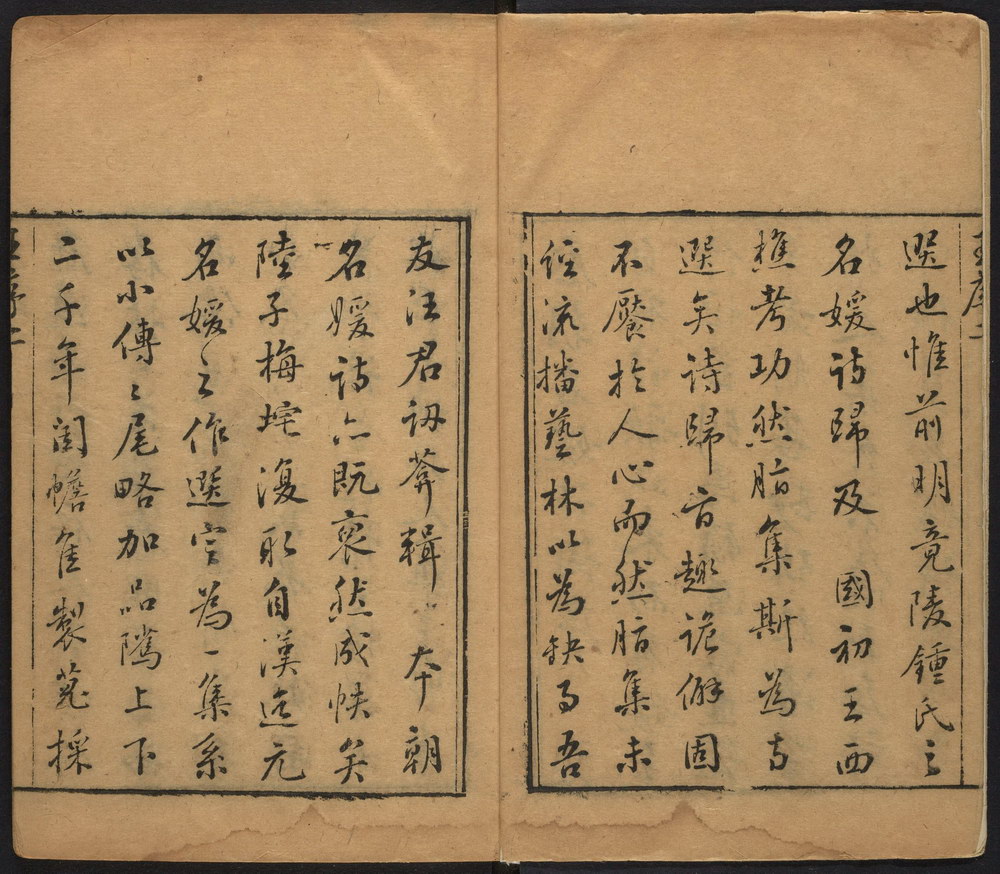 選也惟前明竟陵鍾氏之
名媛詩歸及 國初王西
樵考功然脂集斯為專
選矣詩歸音趣詭僻固
不饜於人心而然脂集未
經流播藝林以為缺事吾
友汪君訒葊輯 本朝
名媛詩亦既裒然成帙矣
陸子梅垞復取自漢迄元
名媛之作選定為一集系
以小傳〻尾略加品隲上下
二千年閨幨雋製蒐採